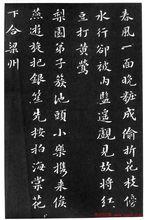 春風一面曉粧成偷折花枝傍
水行卻被内監遙觀見故將紅
豆打黄鶯
梨園弟子簇池頭小樂携来俟
燕遊旋把銀笙先按拍海棠花
下合梁州